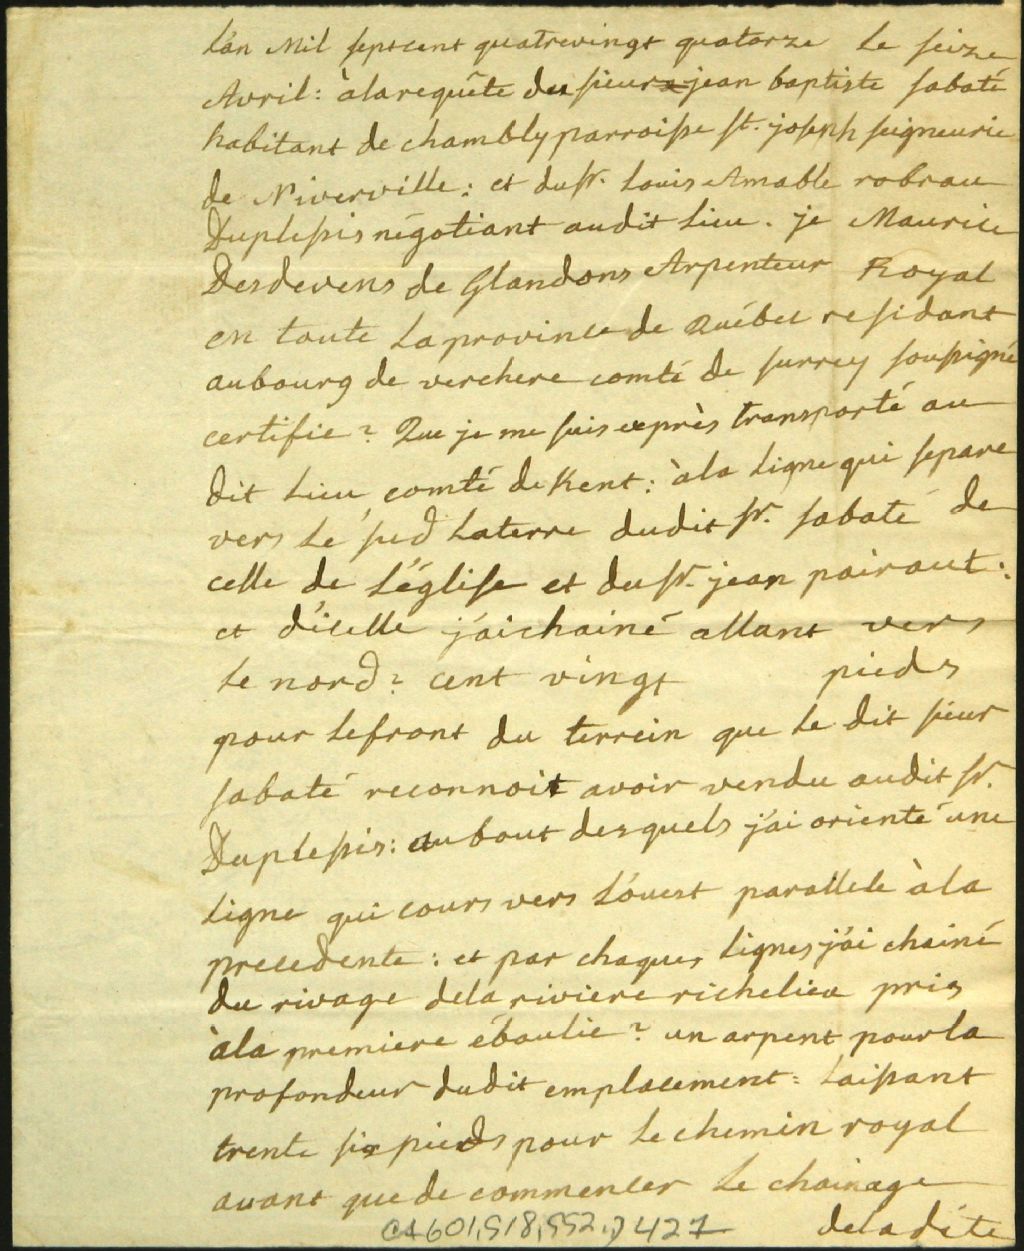 L'an Mil septcent quatrevingt quatorze Le seize
Avril: à la requête du sieur jean baptiste sabaté
habitant de chambly parroisse st. joseph seigneurie
de Niverville: et du sr. Louis Amable robrau
Duplessis négotiant audit Lieu. je Maurice
Desdevens de Glandons Arpenteur Royal
en toute La province de Québec residant
au bourg de verchere comté de surrey soussigné
certifie? Que je me suis exprès transporté au
dit Lieu comté de Kent: à la Ligne qui separe
vers Le sud La terre dudit sr. sabaté de
celle de L'église et du sr. jean pairaut:
et d'icelle j'ai chainé allant vers
Le nord? cent vingt pieds
pour Le front du terrein que Le dit sieur
sabaté reconnoit avoir vendu audit sr.
Duplessis: au bout desquels j'ai orienté une
Ligne qui cours vers L'ouest parallele à la
precedente: et par chaques Lignes j'ai chainé
du rivage de la riviere richelieu pris
à la premiere éboulie? un arpent pour la
profondeur dudit emplacement: Laissant
trente six pieds pour Le chemin royal
avant que de commencer Le chainage
de la dite
CA601,S18,SS2,D427